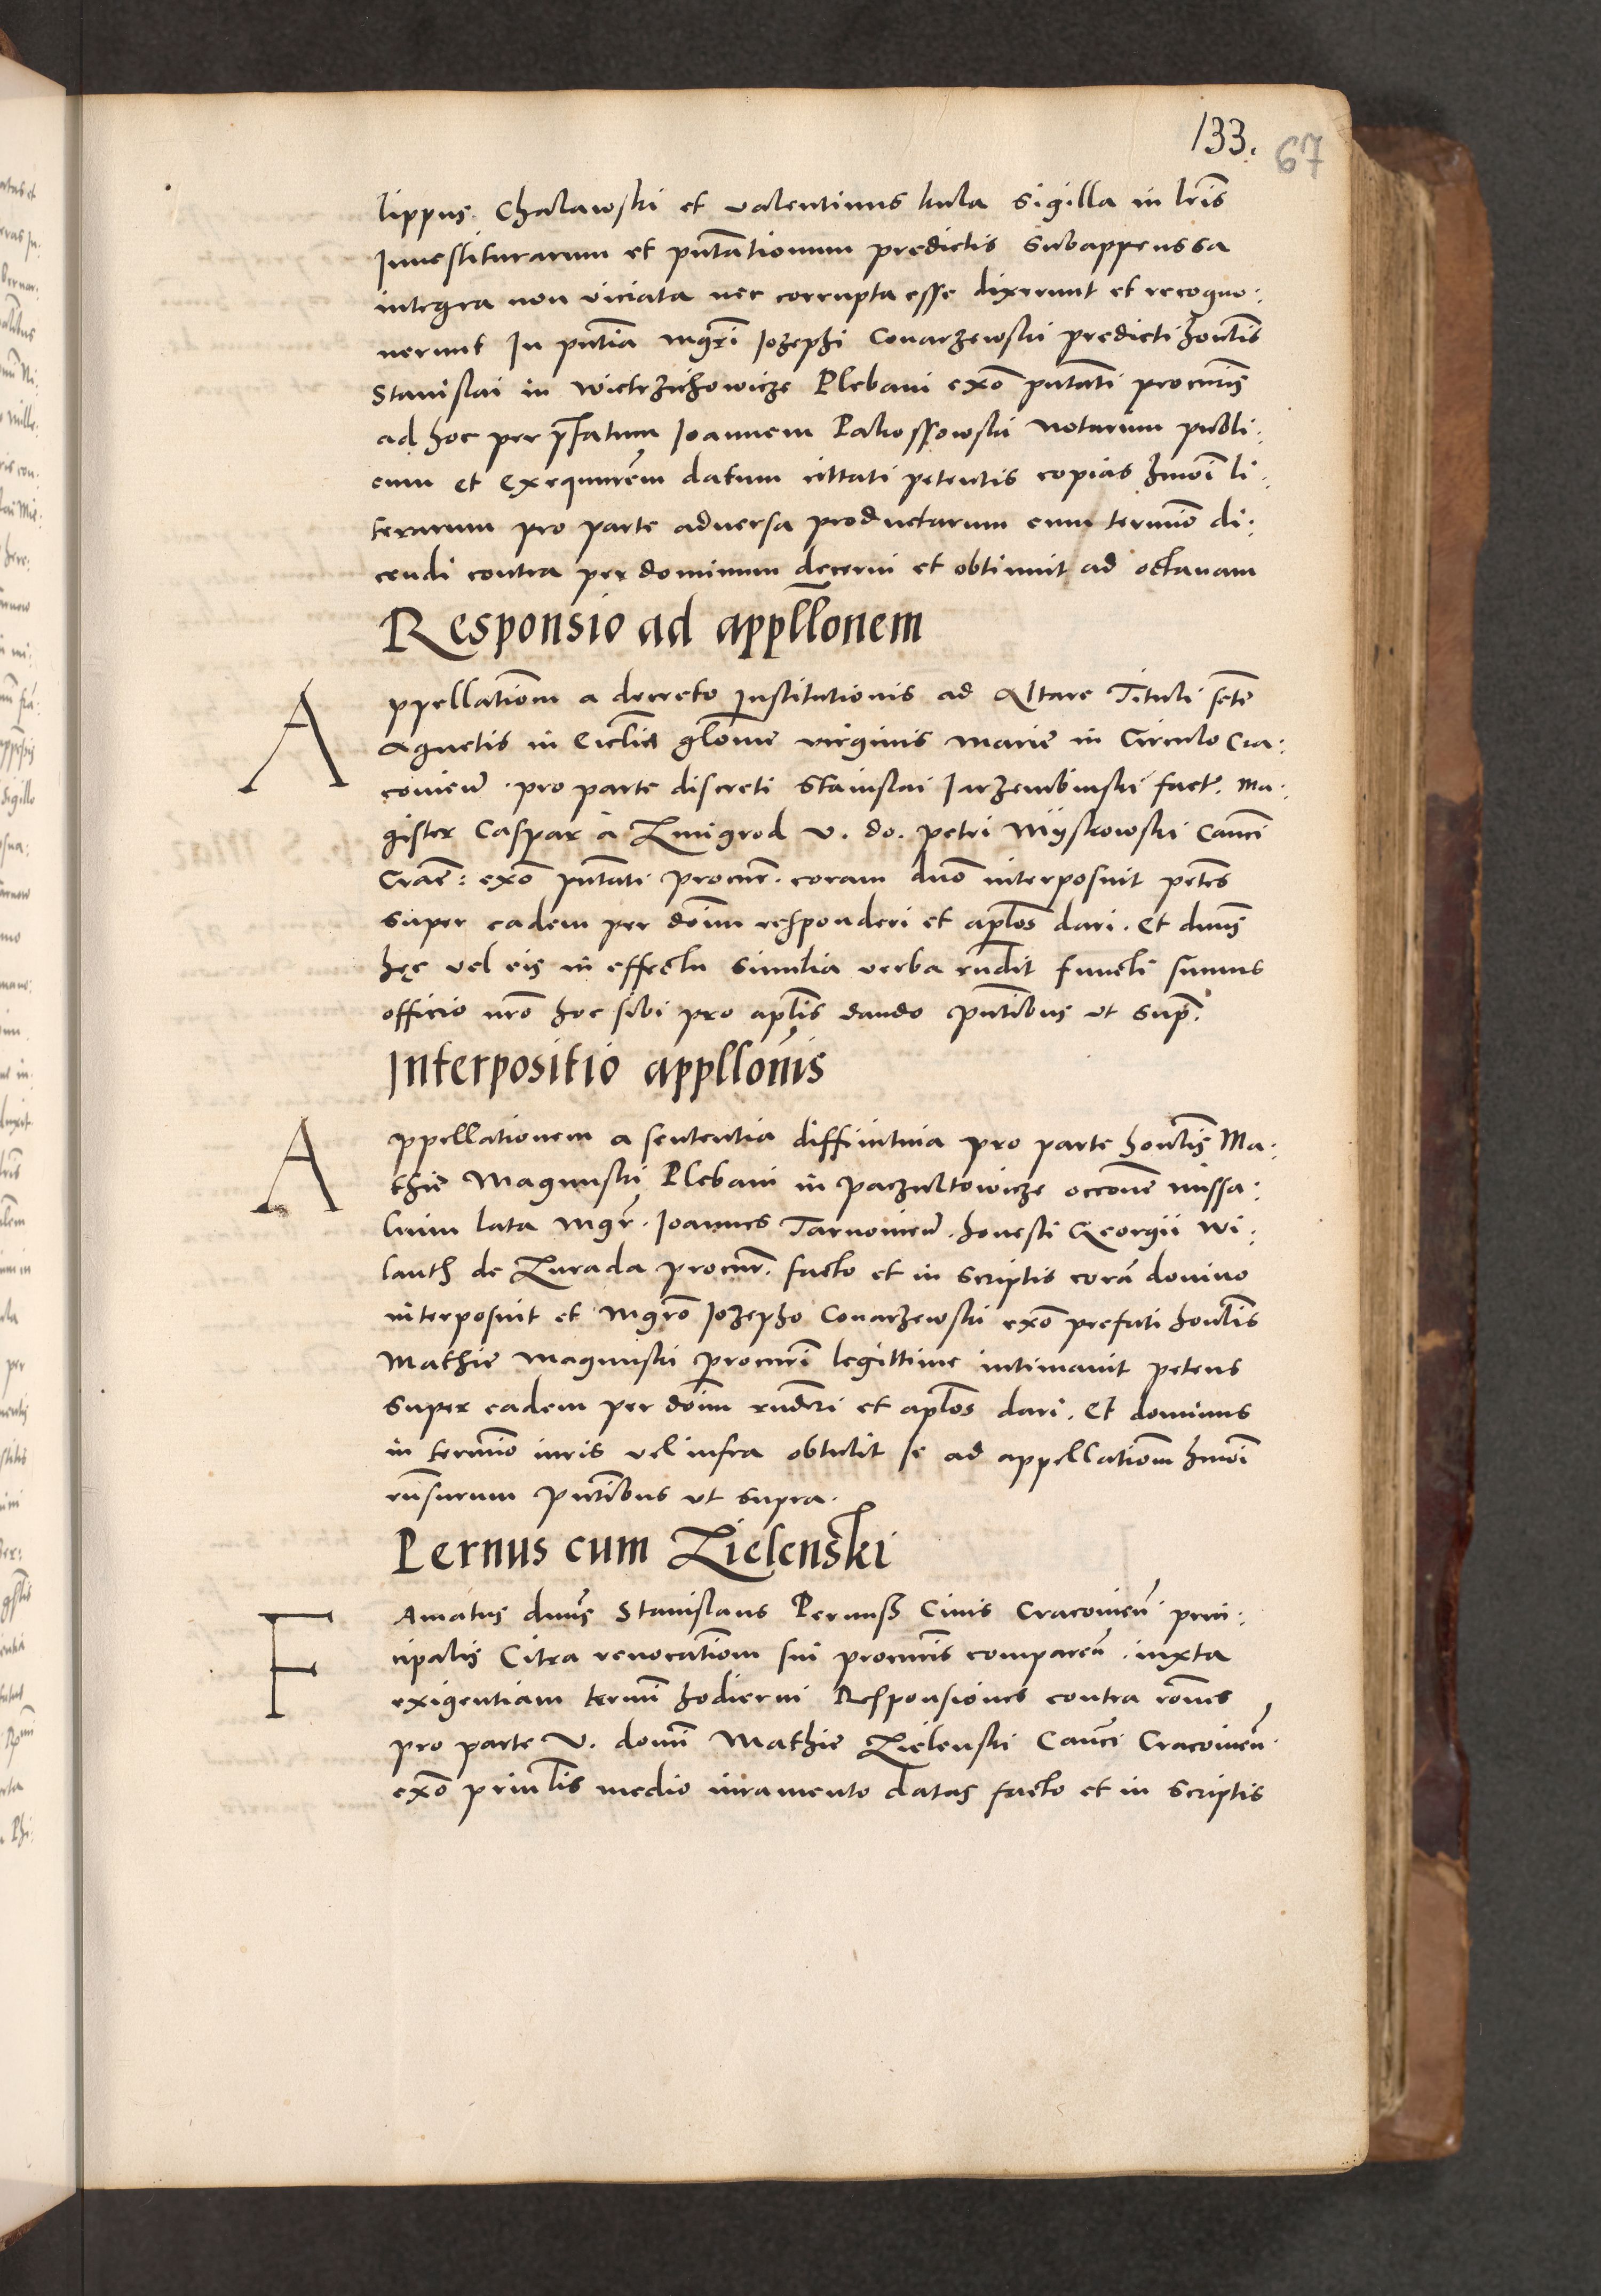 133. 67
lippus. Chalawski et valentinus kula sigilla in lr̃is
Inuestiturarum et pñtãtionum predictis subappenssa
integra non viciata nec corrupta esse dixerunt et recogno:
uerunt In pñtia mgr̃i Jozephi Conarzewski predicti hoñlis
Stanislai in Wietrzichowicze Plebani exõ pñtati procur̃is
ad hoc per p̃fatum Joannem Pakossowski Notarium publi:
cum et Exequutorẽm datum cittati petentis copias hmõi li:
terarum pro parte aduersa productarum cum termĩo di:
cendi contra per dominum decerni et obtinuit ad octauam
Responsio ad appllõnem
Appellatiõm a decreto Institutionis ad Altare Tituli scte
Agnetis in Ecclia glõse virginis marie in Circulo Cra:
couien̄ . pro parte discreti Stanislai Jarzembinski fact̃. Ma:
gister Caspar a Zmigrod V. do. petri Myskowski Cañci
Craẽ: ex õ pñtati procur̃. coram dño interposuit petẽs
super eadem per doim̃ responderi et aplõs dari. Et dñus
hęc vel eis in effectu similia verba rñdit functi sumus
officio nr̃o hoc sibi pro aplĩs dando pñtibus vt sup̃.
Interpositio appllõnis
Appellationem a sententia diffinitiua pro parte hoñlis Ma:
thie Magnuski Plebani in paczultowicze occõne missa:
lium lata mgr̃. Joannes Tarnouien̄. honesti Georgii Wi:
lanth de Zurada procur̃. facto et in scriptis corã domino
interposuit et mgr̃o Jozepho Conarzewski exõ prefati hoñlis
Mathie magnuski procur̃i legittime intimauit petens
super eadem per doim̃ rñderi et aplõs dari. Et dominus
in termĩo iuris vel infra obtulit se ad appellatiõm hmõi
rñsurum pñtibus vt supra.
Pernus cum Zielenski
FAmatus dñus Stanislaus Pernuß Ciuis Cracouien̄ prin:
cipalis Citra reuocatiõm sui procur̃is comparen̄ . iuxta
exigentiam termĩ hodierni Responsiones contra rõnes
pro parte V. domĩ Mathie Zielenski Cañci Cracouien̄.
exõ prinlis medio iuramento datas facto et in scriptis